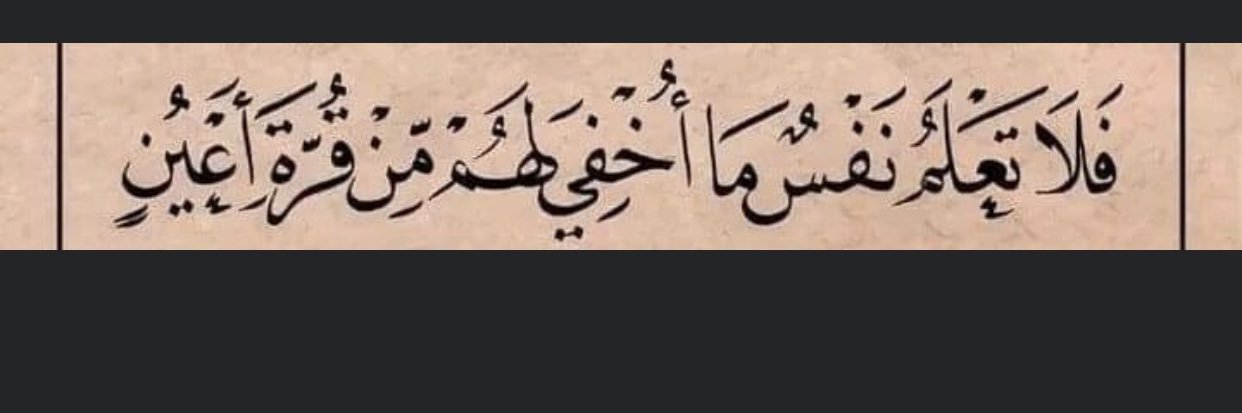 فَلَا تَعْلَمُ نَفْسٌ مَا أُخْفِيَ لَهُمْ مِّنْ قُرَّةِ أَعْيُنٍ